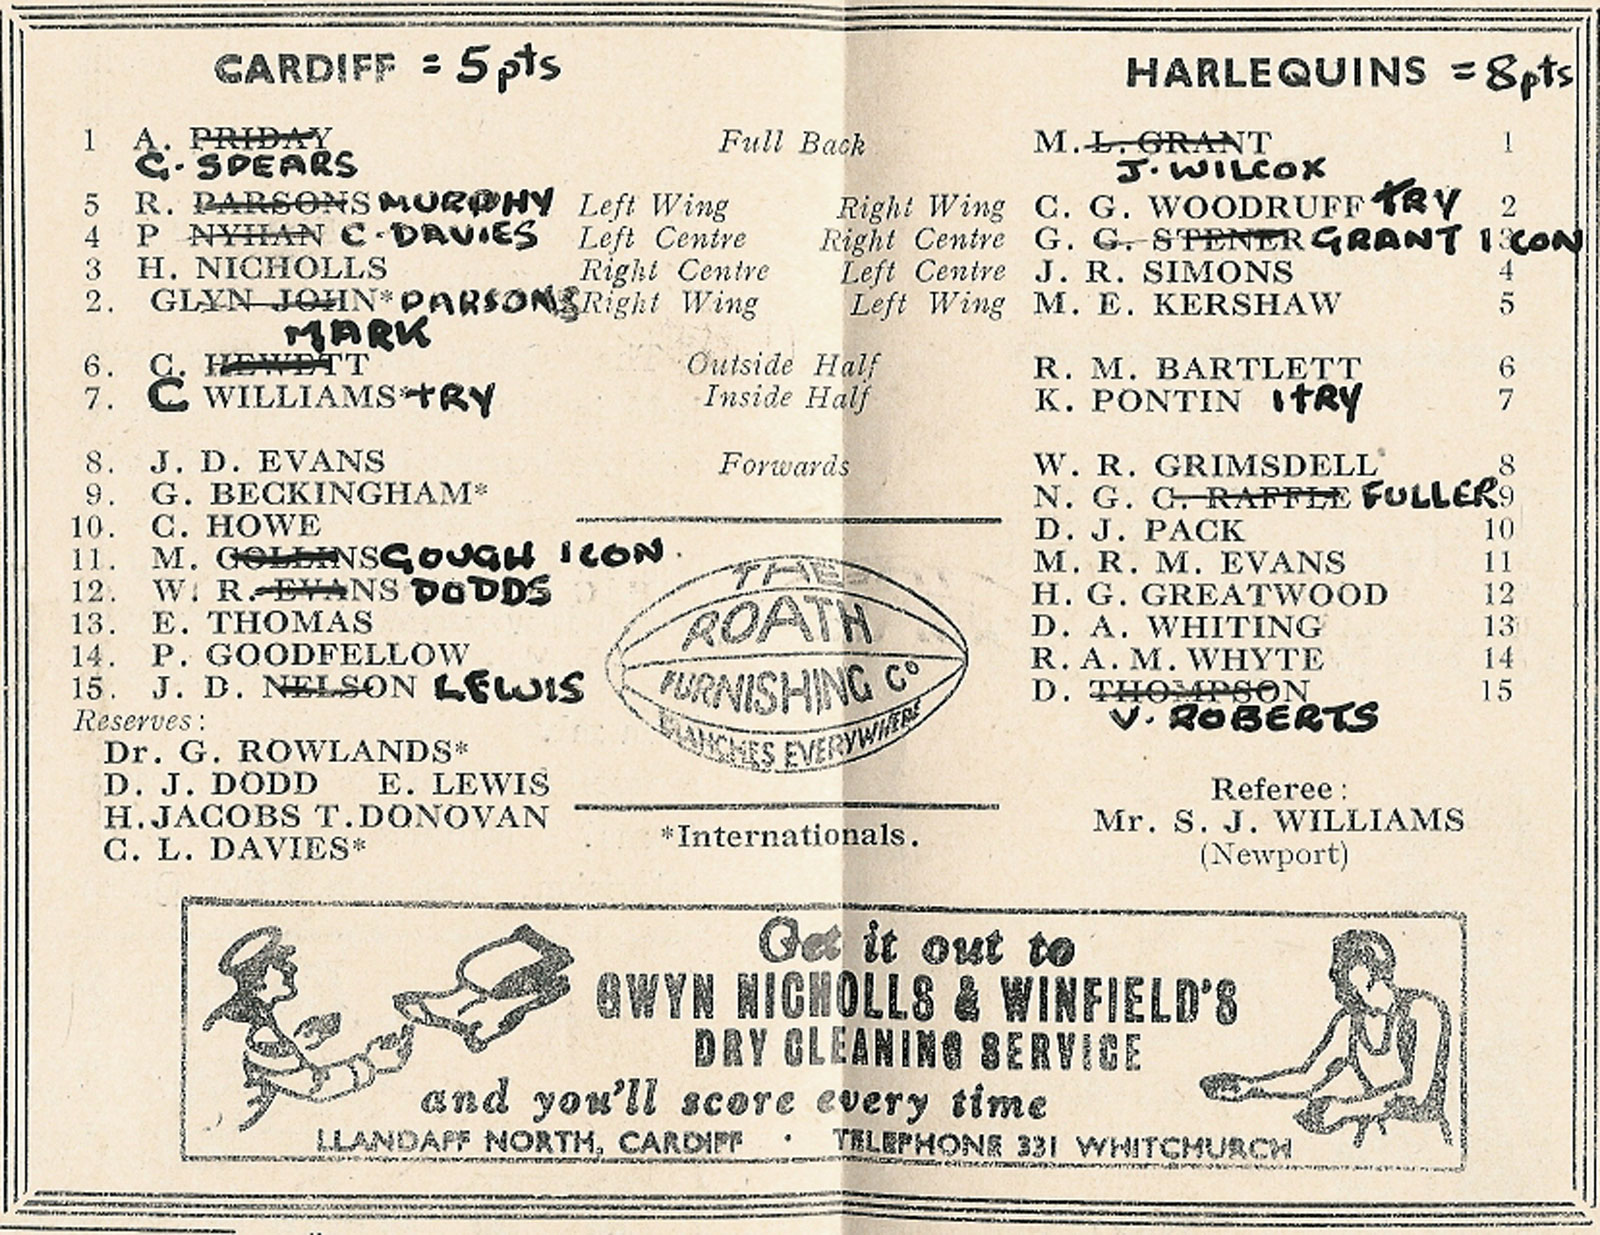 CARDIFF = 5pts
HARLEQUINS = 8pts
1 A. PRIDAY Full Back M. L. GRANT 1
G. SPEARS J. WILCOX
5 R. PARSONS MURPHY Left Wing Right Wing C. G. WOODRUFF TRY 2
4 P NYHAN C. DAVIES Left Centre Right Centre G. G. STENER GRANT 1 CON 3
3 H. NICHOLLS Right Centre Left Centre J. R. SIMONS 4
2. GLYN JOHN* PARSONS Right Wing Left Wing M. E. KERSHAW 5
MARK
6. C. HEWETT Outside Half R. M. BARTLETT 6
7. C WILLIAMS* TRY Inside Half K. PONTIN 1 TRY 7
8. J. D. EVANS Forwards W. R. GRIMSDELL 8
9. G. BECKINGHAM* N. G. C. RAFFLE FULLER 9
10. C. HOWE D. J. PACK 10
11. M. COLLINS GOUGH 1 CON. M. R. M. EVANS 11
12. W. R. EVANS DODDS H. G. GREATWOOD 12
13. E. THOMAS D. A. WHITING 13
14. P. GOODFELLOW R. A. M. WHYTE 14
15. J. D. NELSON LEWIS D. THOMPSON 15
V. ROBERTS
THE
ROATH
FURNISHING Co
BRANCHES EVERYWHERE
Reserves:
Dr. G. ROWLANDS*
D. J. DODD E. LEWIS
H. JACOBS T. DONOVAN
C. L. DAVIES*
*Internationals.
Referee:
Mr. S. J. WILLIAMS
(Newport)
Get it out to
GWYN NICHOLLS & WINFIELD'S
DRY CLEANING SERVICE
and you'll score every time
LLANDAFF NORTH, CARDIFF · TELEPHONE 331 WHITCHURCH